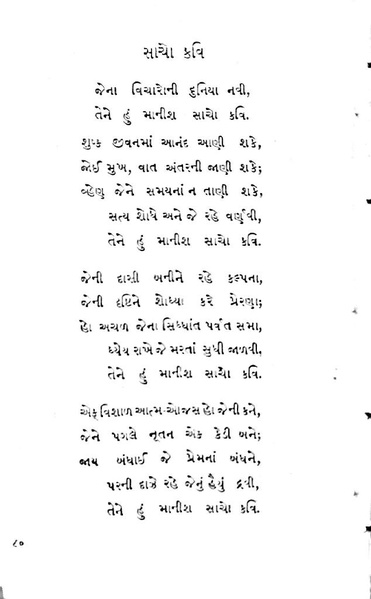 સાચો કવિ
જેના વિચારોની દુનિયા નવી,
તેને હું માનીશ સાચો કવિ.
શુષ્ક જીવનમાં આનંદ આણી શકે,
જોઈ મુખ, વાત અંતરની જાણી શકે;
વ્હેણુ જેને સમયનાં ન તાણી શકે,
સત્ય શોધે અને જે રહે વર્ણુવી,
તેને હું માનીશ સાચો કવિ.
જેની દાસી બનીને રહે કલ્પના,
જેની દષ્ટિને શોધ્યા કરે પ્રેરણા;
હો અચળ જેના સિધ્ધાંત પર્વત સમા,
ધ્યેય રાખે જે મરતાં સુધી જાળવી,
તેને હું માનીશ સાચો કવિ.
એક વિશાળ આત્મ-ઓજસ હો જેની કને,
જેને પગલે નૂતન એક કેડી બને;
જાય બંધાઈ જે પ્રેમનાં બંધને,
પરની દાઝે રહે જેનું હૈયું દ્રવી,
તેને હું માનીશ સાચો કવિ.
૮૦